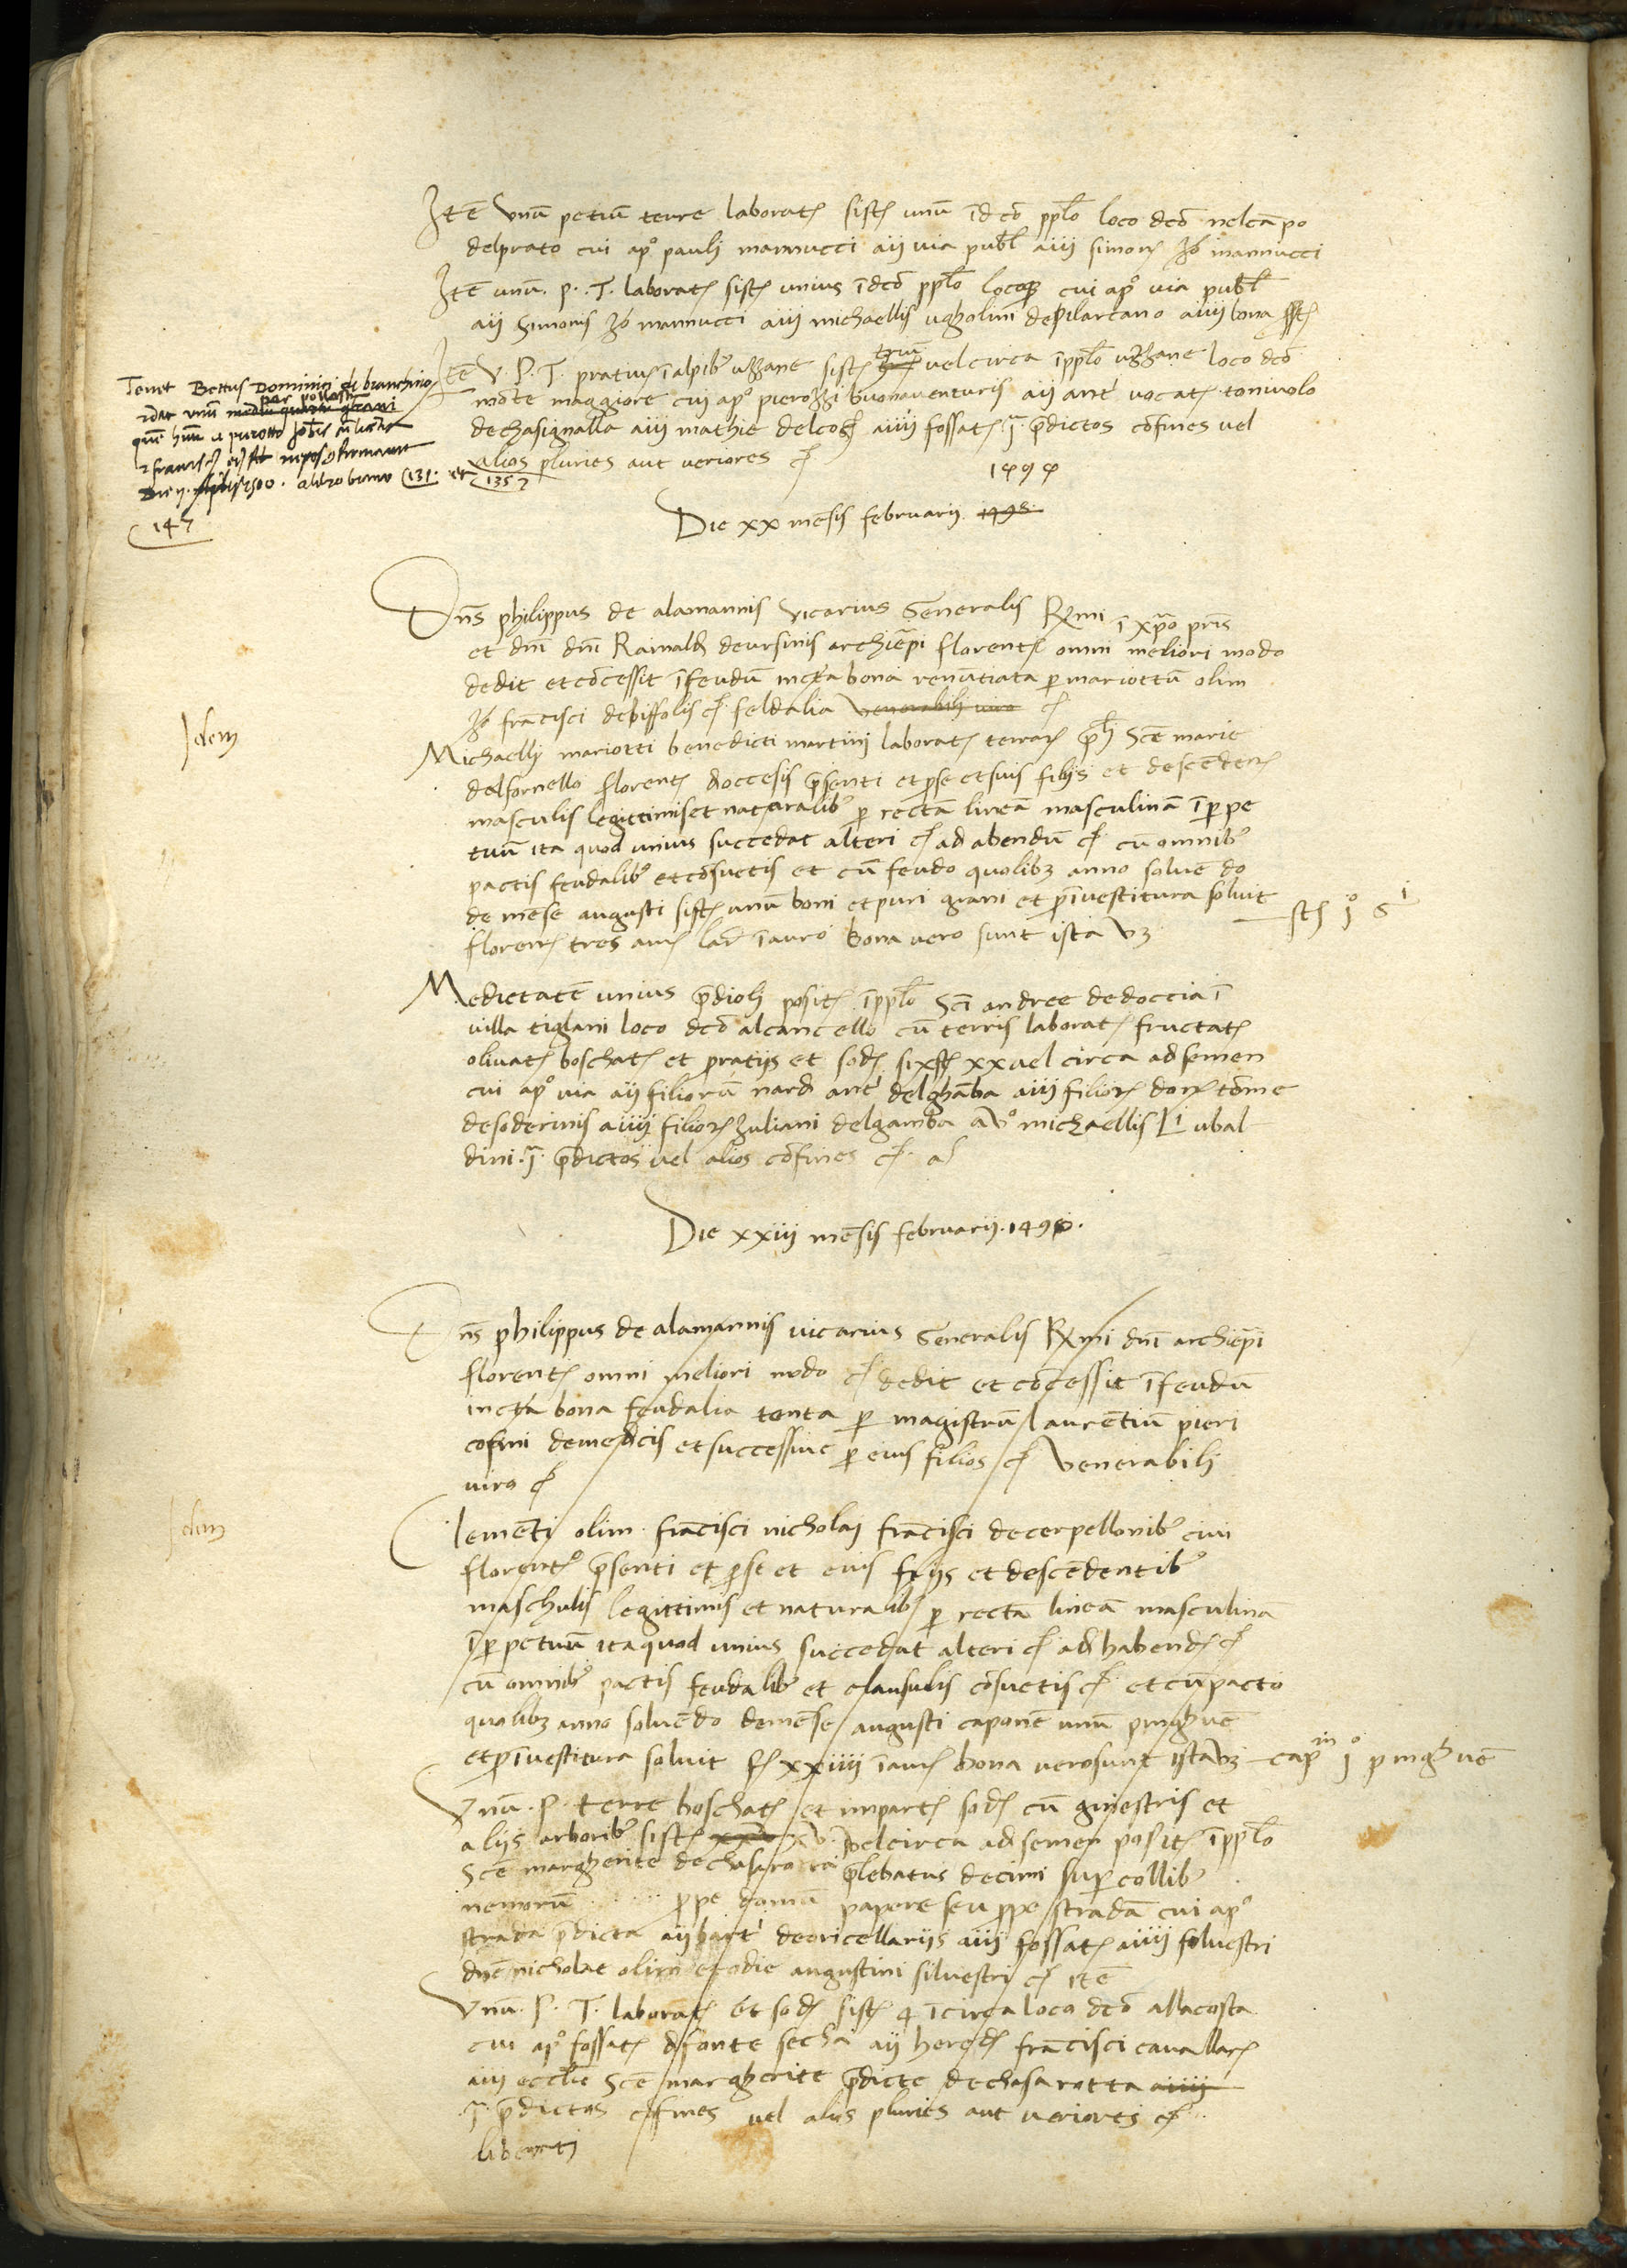 Itē Vnū petiū terre laborat sist unū ī dcō pplo loco dcō nelcāpo
delprato cui apo pauli mannucci aii uia publ aiii simoni Jo mannucci
Itē unū. P. T. laborat sist unius ī dcō pplo locoq cui apo uia publ
aii Simonis Jo mannucci aiii michaellis ugholini depilarcano aiiii bona
Itē V. P. T. pratiui ī alpib uzzane sist triū uel circa ī pplo uzzane loco dcō
monte maggiore cui apo pierozzi buonauenturis aii ant uocat toniuolo
dechasignalla aiii mathie delcoss aiiii fossat ī pdictos cōfines uel
alios pluries aut ueriores
Tenet Bettus Dominici de branchino
par pollastr
2 franc
Die ii. aplis 1500. a libro bruno 131. et 135
147
1494
Die xx mēsis februarii 1495
Dns philippus de alamannis vicarius Generalis Rx mi ī xpo pris
et dni dni Rainaldi deursinis archiepi florent omni meliori modo
dedit et cōcessit ī feudū incta bona renūtiata p mariottū olim
Jo frācisci debiffolis feldalia venerabili uiro
Idem
Michaelli mariotti benedicti martini laborat terrar Sce marie
delfornello florent dioccesis psenti et pse et suis filiis et descēden
masculis legittimis et naturalib p rectā lineā masculinā ī ppe
tuū ita quod unius succedat alteri ad abendū cū omnib
pactis feudalib et cōsuetis et cū feudo quolibz anno soluēdo
de mēse augusti sist unū boni et puri grani et p īuestitura soluit
floren tres aur lar ī auro bona uero sunt ista vz
Medietatē unius pdioli posit ī pplo Sci andree dedoccia ī
uilla tiglani loco dcō alcancello cū terris laborat fructat
oliuat boschat et pratiis et sod xx uel circa ad semen
cui apo uia aii filiorū nardi ant delghāba aiii filior don tōme
desoderinis aiiii filior Juliani delgamba avo michaellis ubal
dini. ī pdictos uel alios cōfines
Die xxiii mēsis februarii. 1494.
Dns philippus de alamannis uicarius Generalis Rx mi dni archiepi
florent omni meliori modo dedit et cōcessit ī feudū
incta bona feudalia tenta p magistrū laurētiū pieri
cosmi demedicis et successiue p eius filios Venerabili
uiro
Idem
Clementi olim francisci nicholai francisci decerpellonib ciui
florent psenti et pse et eius filiis et descēdentib
maschulis legittimis et naturalib p rectā lineā masculina
ī ppetuū ita quod unius succedat alteri ad habend
cū omnib pactis feudalib et clausulis cōsuetis et cū pacto
quolibz anno soluēdo demēse augusti caponē unū pinghuē
et p īuestitura soluit f xxiiii ī aur bona uero sunt ista vz cap in 1o pinghuē
Vnū. P. terre boschat et inpart sod cū ginestris et
aliis arborib sist xv. Vel circa ad semen posit ī pplo
Sce margherite dechasarotta plebatus decimi sup collib
nemorū ppe domū papere seu ppe stradā cui apo
strada pdicta aii bart deoricellariis aiii fossat aiiii siluestri
dnē nicholae olim et odie augustini siluestri itē
Vnū. P. T. laborat et sod sist 4 ī circa loco dcō allacosta
cui apo fossat dfonte secha aii hered francisci cauallar
aiii ecclie Sce margherite pdicte dechasarotta aiiii
ī pdictos cōfines uel alios pluries aut ueriores
libenti